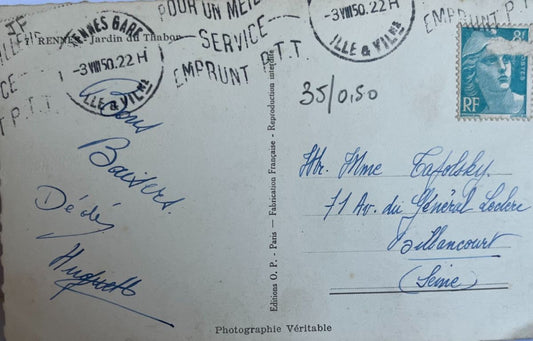 POUR UN MEIL
SERVICE
EMPRUNT P.T.T.
RENNES GARE
-3 VIII 50. 22 H
ILLE & VILNE
-3 VIII 50. 22 H
ILLE & VILNE
EMPRUNT P.T.T.
RENNES – Jardin du Thabor
35/0,50
RF
POSTES
Bons
Baisers.
Dédé
Huguette
Mr. Mme Tafolsky.
71 Av. du Général Leclerc
Billancourt
(Seine)
Editions O. P. - Paris — Fabrication Française - Reproduction interdite
Photographie Véritable